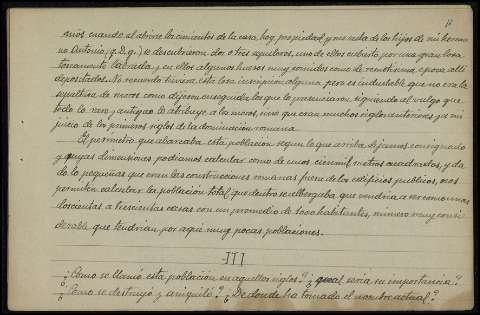 11
mos cuando al abrirse los cimientos de la casa, hoy propiedad, y no resta de los hijos de mi herma
no Antonio (q. D. g.) se descubrieron dos o tres sepulcros, uno de ellos cubierto por una gran losa
toscamente labrada, y en ellos algunos huesos muy corroidos como de remotísima época allí
depositados. No recuerdo tuviera esta losa inscripción alguna, pero es indudable que no era la
sepultura de moros como dijeron enseguida los que lo presenciaron, siguiendo al vulgo que
todo lo raro y antiguo lo atribuye a los moros, sino que eran muchos siglos anteriores, y a mi
juicio de los primeros siglos de la dominación romana.
El perímetro que abarcaba esta población segun lo que arriba dejamos consignado
y cuyas dimensiones podíamos calcular como de unos cien mil metros cuadrados, y da
do lo pequeñas que eran las construcciones romanas fuera de los edificios publicos, nos
permiten calcular la población total que dentro se albergaba que vendria a ser como unas
doscientas a trescientas casas con un promedio de 1000 habitantes, número muy consi
derable que tendrian por aquí muy pocas poblaciones.
III
¿Como se llamó esta población en aquellos siglos? ¿qual seria su importancia?
¿Como se destruyó y aniquiló? ¿De donde ha tomado el nombre actual?